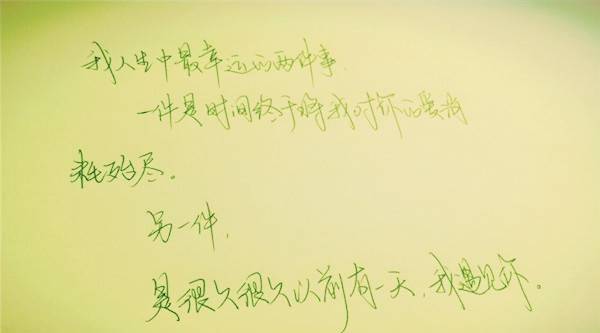 我人生中最幸运的两件事
一件是时间终于将我对你的爱消
耗殆尽。
另一件,
是很久很久以前有一天,我遇见你。